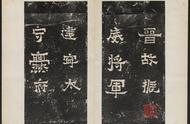 晉故振
威將軍
建寧太
守爨府